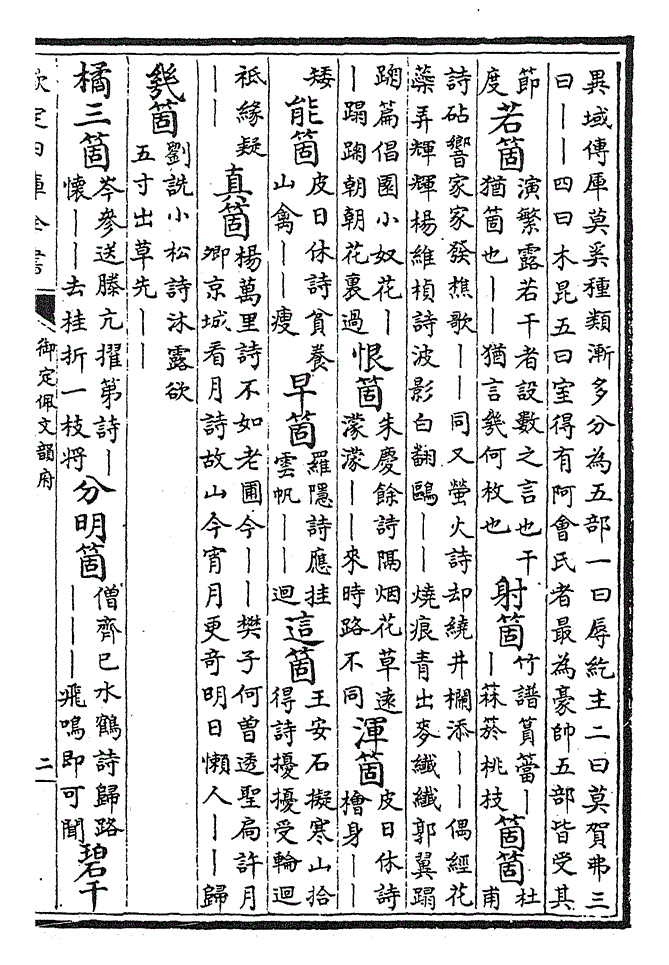 異域傳厙莫奚種類漸多分為五部一曰辱紇主二曰莫賀弗三
曰——四曰木昆五曰室得有阿會氏者最為豪帥五部皆受其
節度 若箇 演繁露若干者設數之言也干猶箇也——猶言幾何枚也 射箇 竹譜篔簹——箖菸桃枝 箇箇 杜甫
詩砧響家家發樵歌——同又螢火詩却繞井欄添——偶經花
蘂弄輝輝楊維楨詩波影白翻鷗——燒痕青出麥纖纖郭翼蹋
踘篇倡園小奴花——蹋踘朝朝花裏過 恨箇 朱慶餘詩隔烟花草遠濛濛——來時路不同 渾箇 皮日休詩檜身——
矮 能箇 皮日休詩貧養山禽——瘦 早箇 羅隱詩應挂雲帆——迴 這箇 王安石擬寒山拾得詩擾擾受輪迴
祇緣疑—— 真箇 楊萬里詩不如老圃今——樊子何曾透聖扃許月卿京城看月詩故山今宵月更奇明日懶人——歸
幾箇 劉詵小松詩沐露欲五寸出草先——
橘三箇 岑參送滕亢擢第詩—懷——去桂折一枝將 分明箇 僧齊已水鶴詩歸路———飛鳴即可聞 碧千
欽定四庫全書
御定佩文韻府
二